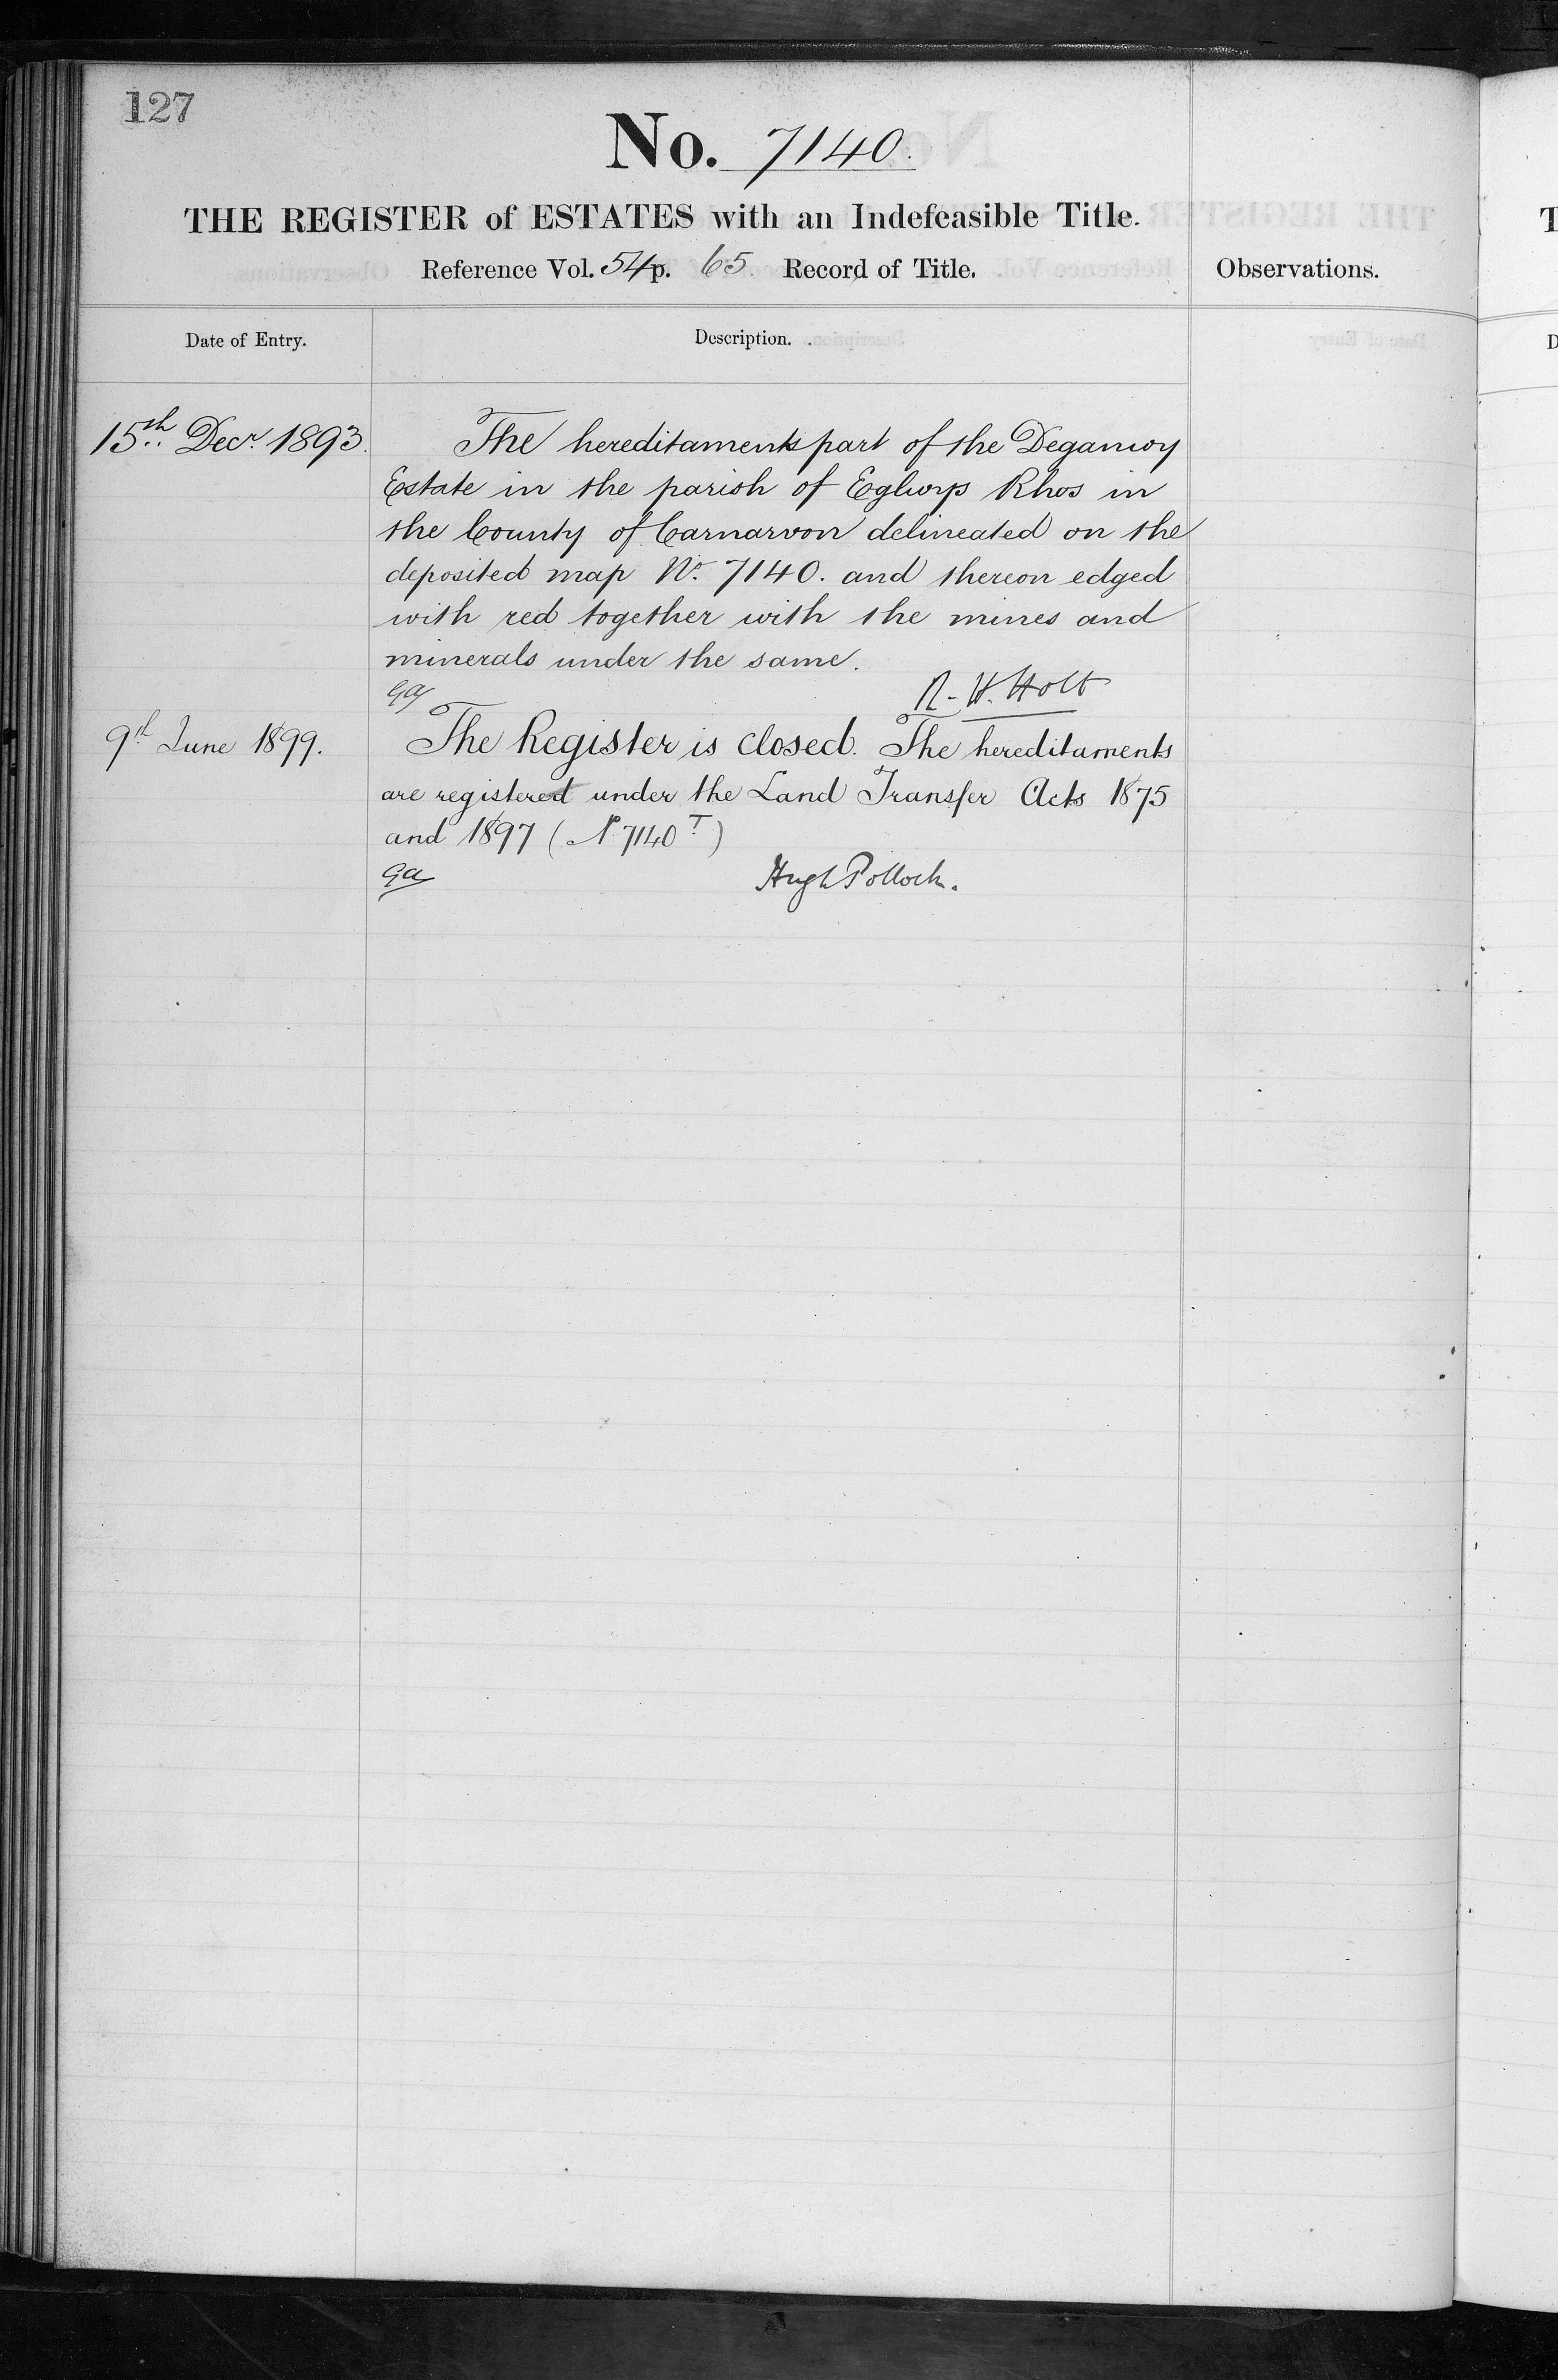 127
No. 7140.
THE REGISTER of ESTATES with an Indefeasible Title.
Reference Vol. 54 p. 65. Record of Title.
Observations.
Date of Entry.
Description.
15th Decr. 1893.
The hereditaments part of the Deganwy
Estate in the parish of Eglwys Rhos in
the County of Carnarvon delineated on the
deposited map No. 7140. and thereon edged
with red together with the mines and
minerals under the same.
R. H. Holt
9th June 1899.
The Register is closed. The hereditaments
are registered under the Land Transfer Acts 1875
and 1897 (No 7140 T)
Hugh Pollock.